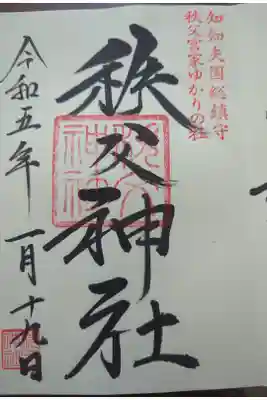 知知夫国総鎮守
秩父宮家ゆかりの社
秩父神社
令和五年一月十九日